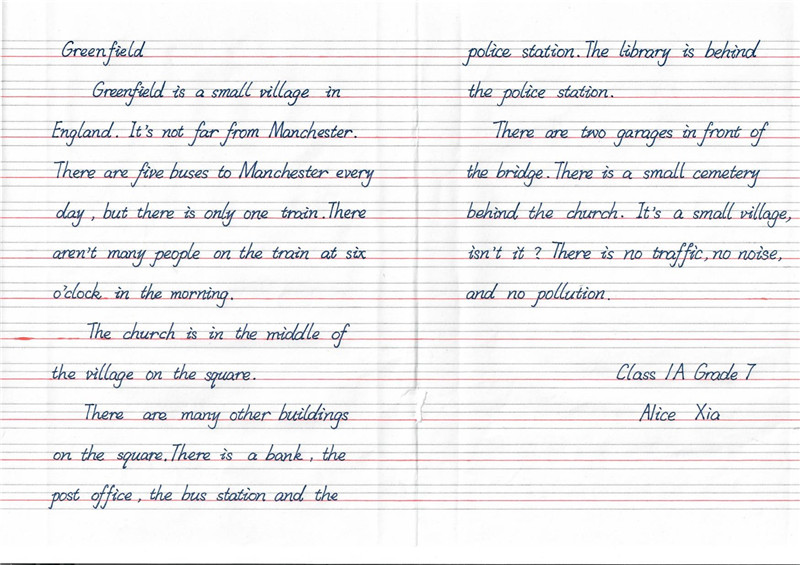 Greenfield
Greenfield is a small village in
England. It's not far from Manchester.
There are five buses to Manchester every
day, but there is only one train. There
aren't many people on the train at six
o'clock in the morning.
The church is in the middle of
the village on the square.
There are many other buildings
on the square. There is a bank, the
post office, the bus station and the
police station. The library is behind
the police station.
There are two garages in front of
the bridge. There is a small cemetery
behind the church. It's a small village,
isn't it? There is no traffic, no noise,
and no pollution.
Class 1A Grade 7
Alice Xia